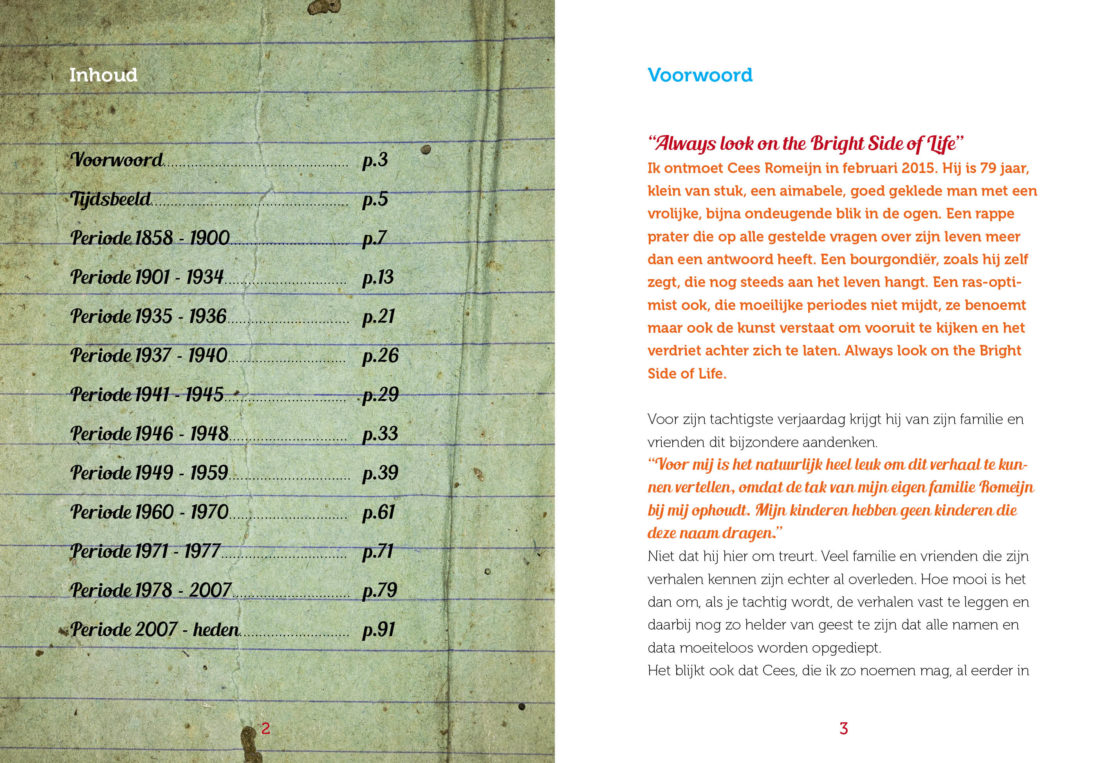 Inhoud
Voorwoord p.3
Tijdsbeeld p.5
Periode 1858 - 1900 p.7
Periode 1901 - 1934 p.13
Periode 1935 - 1936 p.21
Periode 1937 - 1940 p.26
Periode 1941 - 1945 p.29
Periode 1946 - 1948 p.33
Periode 1949 - 1959 p.39
Periode 1960 - 1970 p.61
Periode 1971 - 1977 p.71
Periode 1978 - 2007 p.79
Periode 2007 - heden p.91
2
Voorwoord
“Always look on the Bright Side of Life”
Ik ontmoet Cees Romeijn in februari 2015. Hij is 79 jaar,
klein van stuk, een aimabele, goed geklede man met een
vrolijke, bijna ondeugende blik in de ogen. Een rappe
prater die op alle gestelde vragen over zijn leven meer
dan een antwoord heeft. Een bourgondiër, zoals hij zelf
zegt, die nog steeds aan het leven hangt. Een ras-opti-
mist ook, die moeilijke periodes niet mijdt, ze benoemt
maar ook de kunst verstaat om vooruit te kijken en het
verdriet achter zich te laten. Always look on the Bright
Side of Life.
Voor zijn tachtigste verjaardag krijgt hij van zijn familie en
vrienden dit bijzondere aandenken.
“Voor mij is het natuurlijk heel leuk om dit verhaal te kun-
nen vertellen, omdat de tak van mijn eigen familie Romeijn
bij mij ophoudt. Mijn kinderen hebben geen kinderen die
deze naam dragen.”
Niet dat hij hier om treurt. Veel familie en vrienden die zijn
verhalen kennen zijn echter al overleden. Hoe mooi is het
dan om, als je tachtig wordt, de verhalen vast te leggen en
daarbij nog zo helder van geest te zijn dat alle namen en
data moeiteloos worden opgediept.
Het blijkt ook dat Cees, die ik zo noemen mag, al eerder in
3